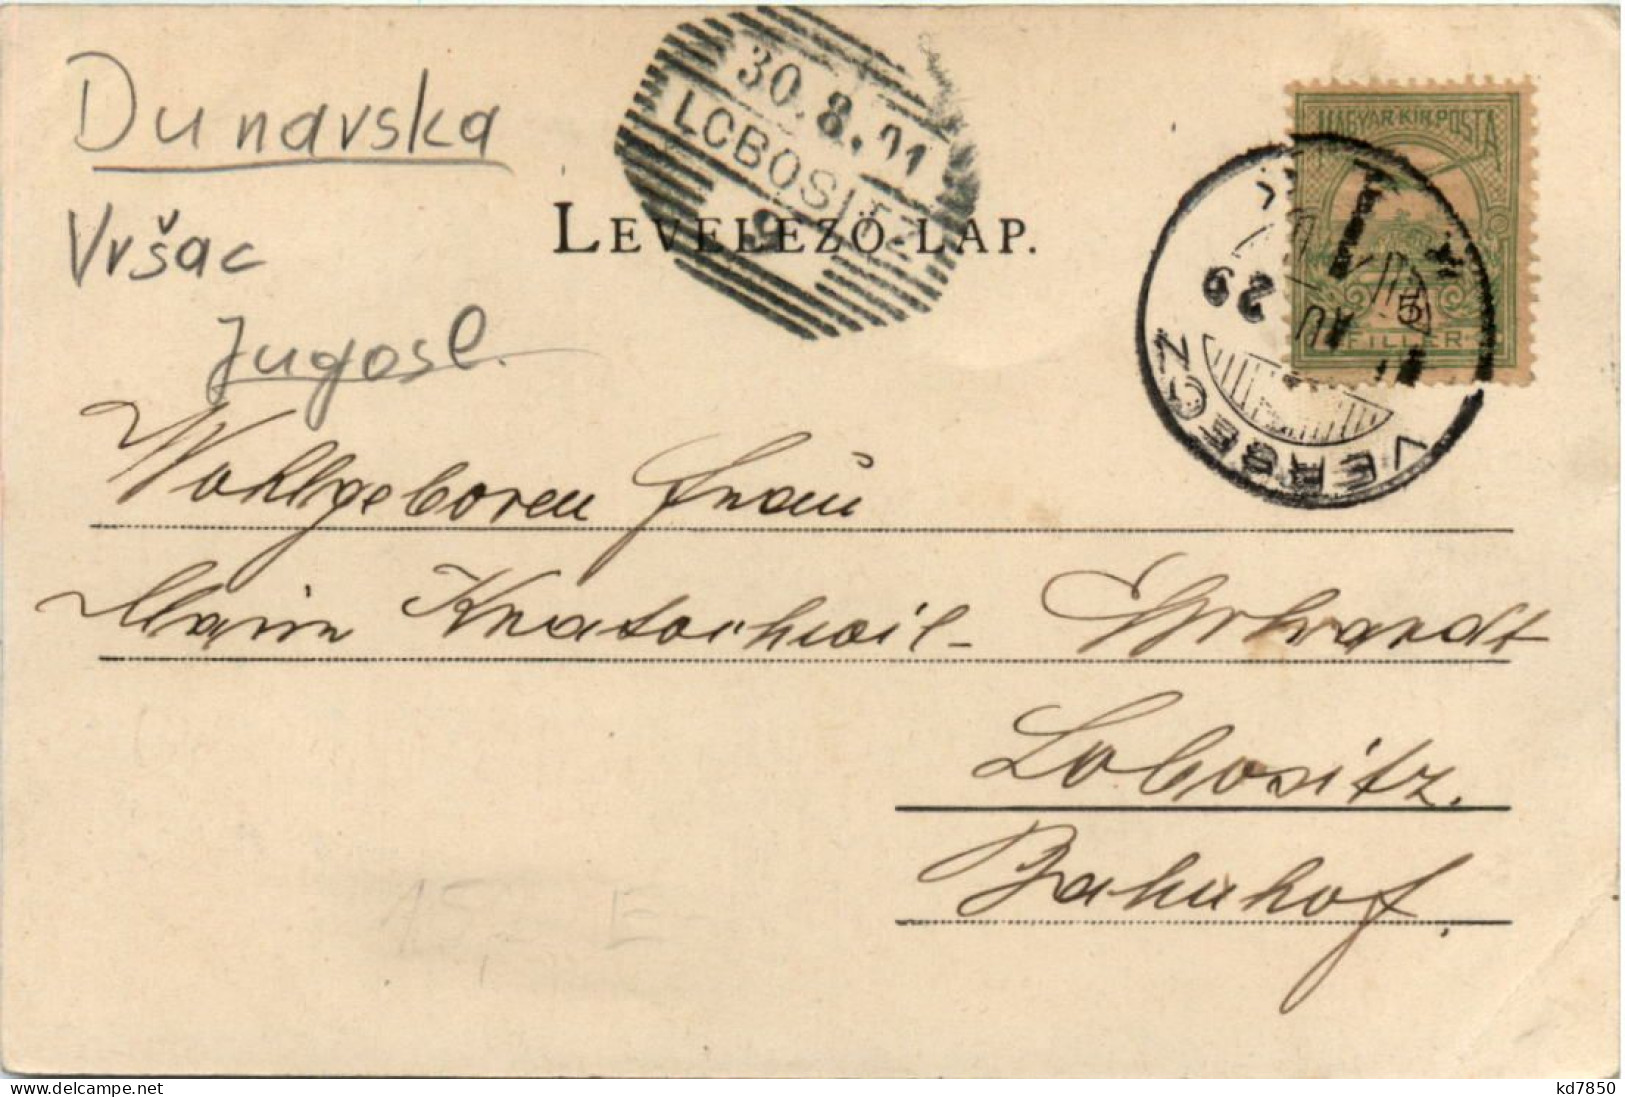 Dunavska
Vršac
Jugosl.
30.8.01
LOBOSITZ
9
LEVELEZŐ-LAP.
MAGYAR KIR. POSTA
5
FILLER
VERSECZ
29
Wohlgeboren Frau
Marie Knatschwil - Ehrhardt
Lobositz.
Bahnhof.
15 E
kd7850